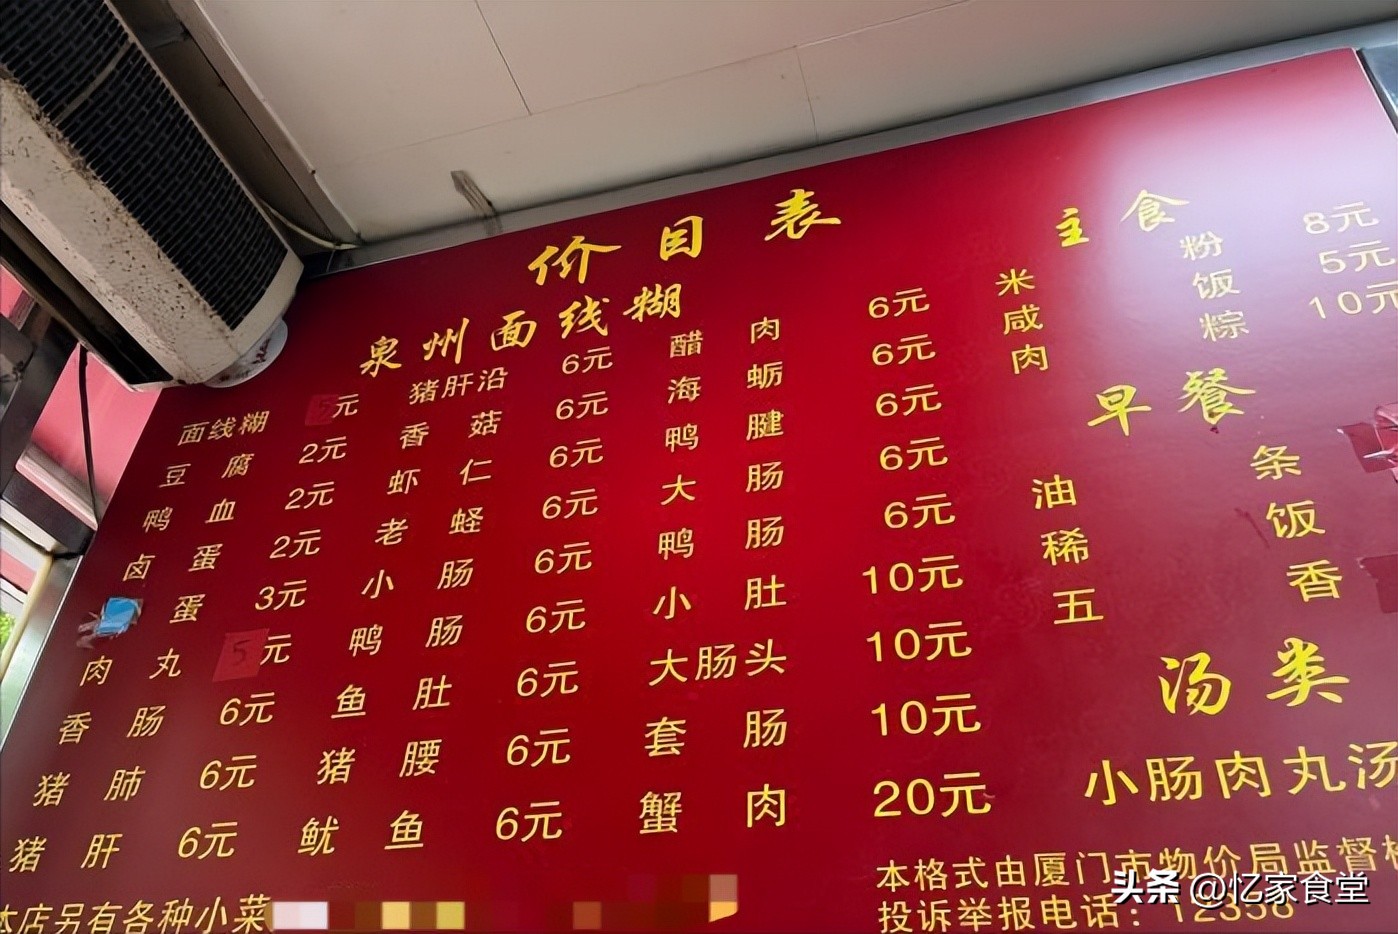 价目表
泉州面线糊
面线糊 元 猪肝沿 6元 醋肉 6元
豆腐 2元 香菇 6元 海蛎 6元
鸭血 2元 虾仁 6元 鸭腱 6元
卤蛋 2元 老蛏 6元 大肠 6元
蛋 3元 小肠 6元 鸭肠 6元
肉丸 5元 鸭肠 6元 小肚 10元
香肠 6元 鱼肚 6元 大肠头 10元
猪肺 6元 猪腰 6元 套肠 10元
猪肝 6元 鱿鱼 6元 蟹肉 20元
主食
米粉 8元
咸饭 5元
肉粽 10元
早餐
油条
稀饭
五香
汤类
小肠肉丸汤
本店另有各种小菜
本格式由厦门市物价局监督
投诉举报电话：12358
头条 @忆家食堂